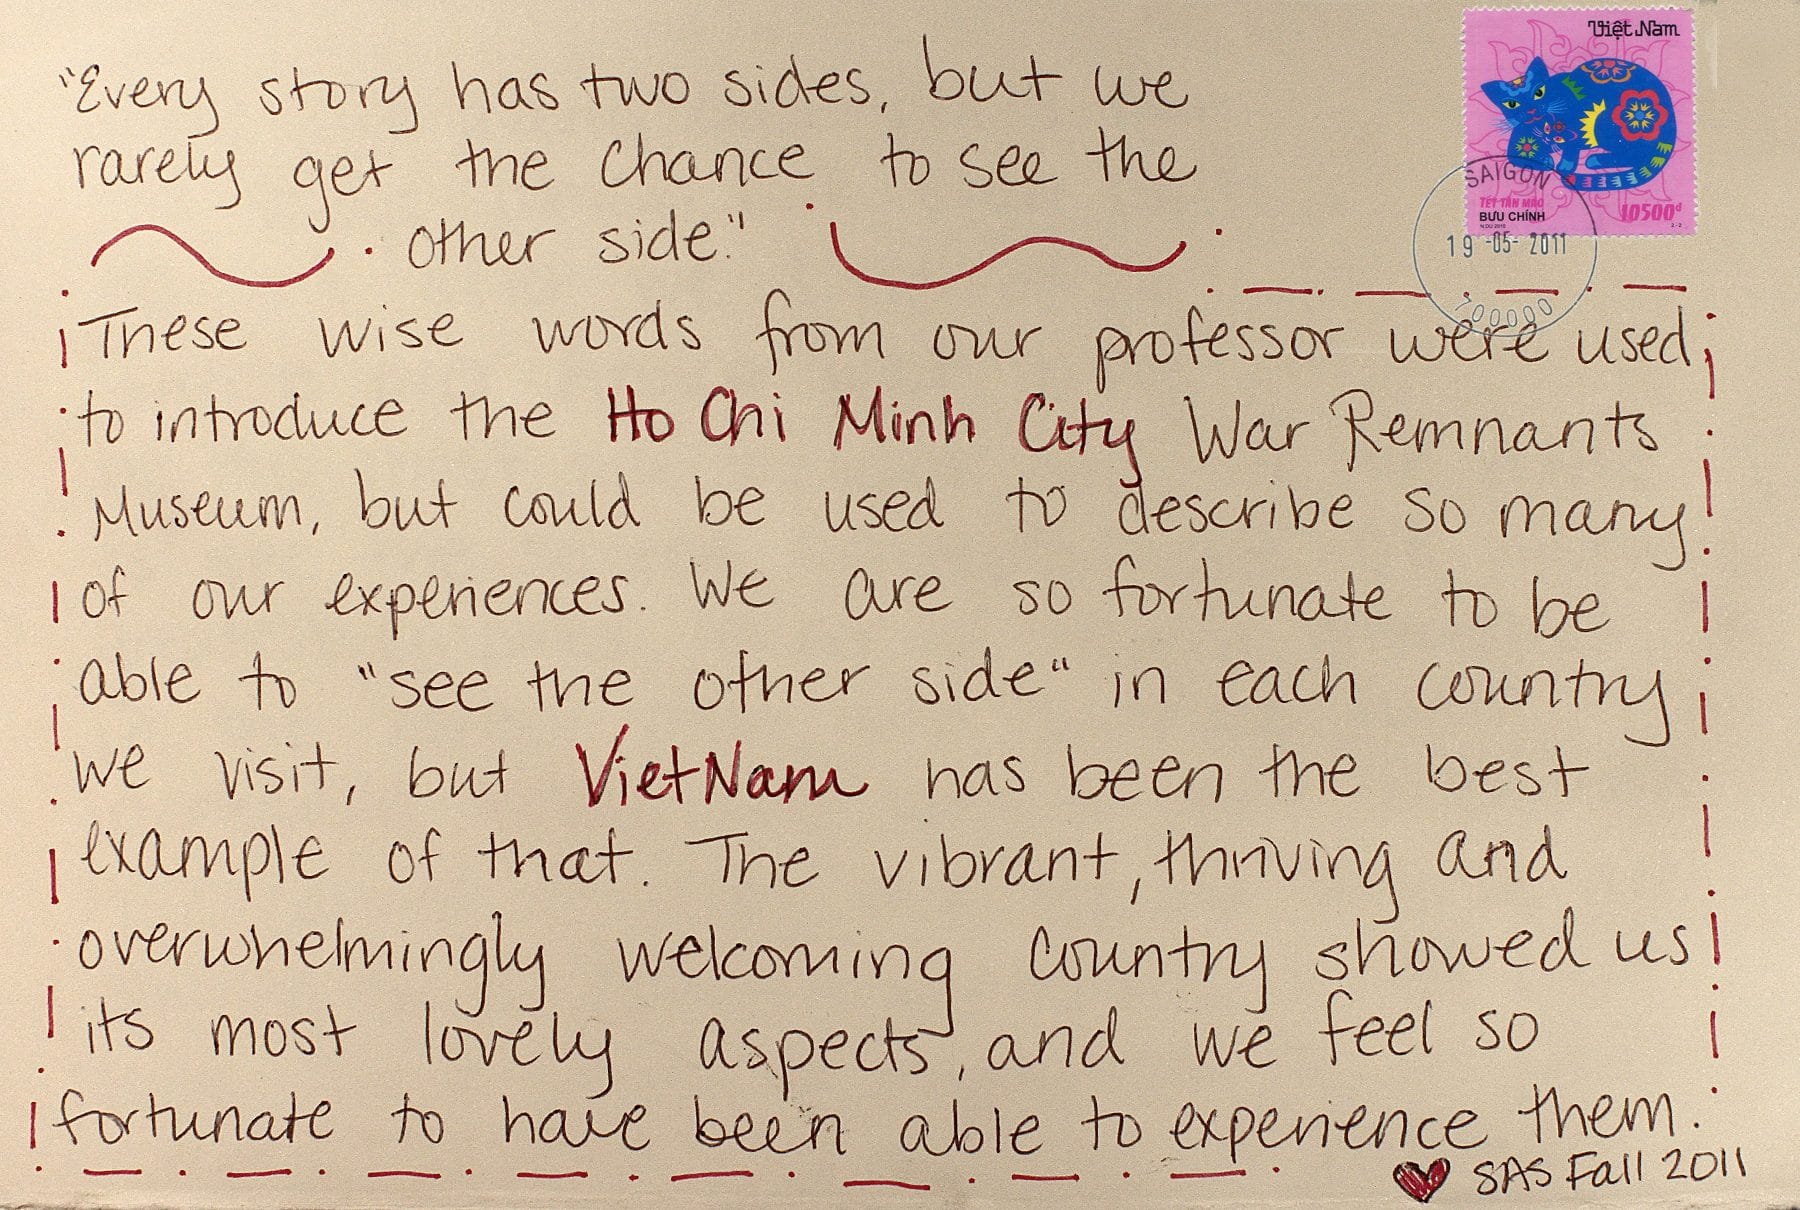 "Every story has two sides, but we
rarely get the chance to see the
other side."
These wise words from our professor were used
to introduce the Ho Chi Minh City War Remnants
Museum, but could be used to describe so many
of our experiences. We are so fortunate to be
able to "see the other side" in each country
we visit, but VietNam has been the best
example of that. The vibrant, thriving and
overwhelmingly welcoming country showed us
its most lovely aspects, and we feel so
fortunate to have been able to experience them.
SAS Fall 2011
Việt Nam
SAIGON
TẾT TÂN MÃO
BƯU CHÍNH
10500đ
2-2
19-05-2011
700000